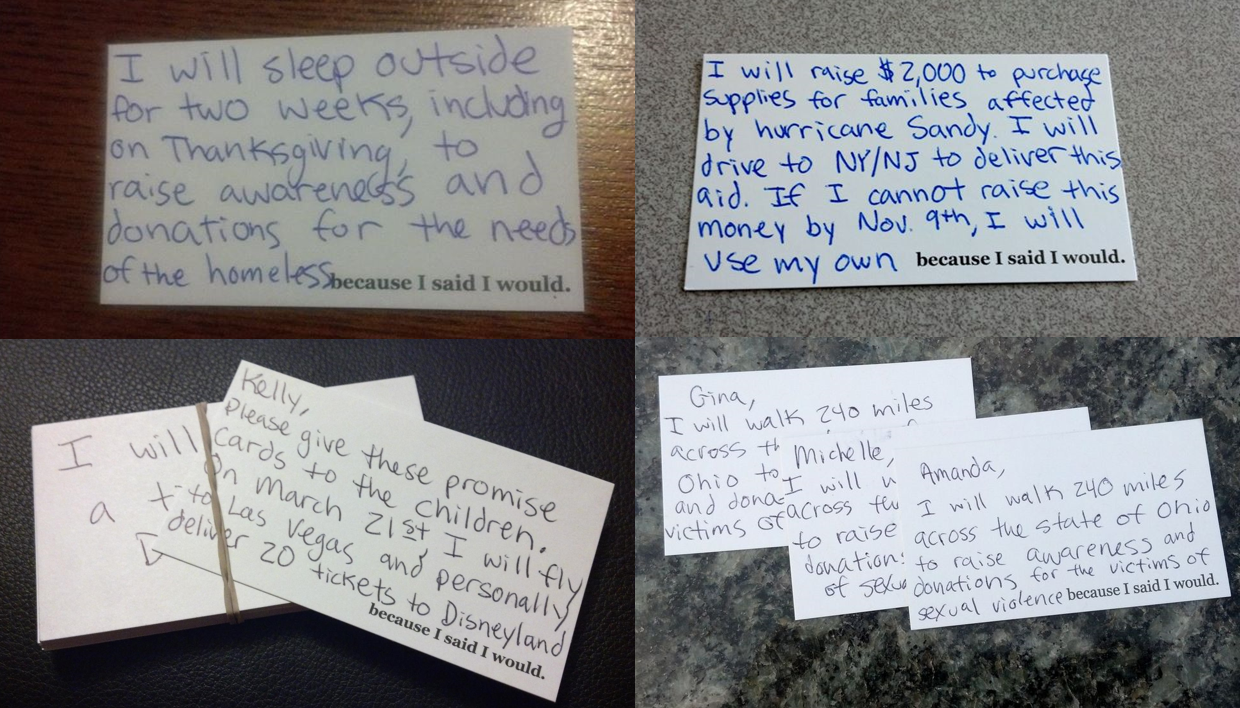 I will sleep outside
for two weeks, including
on Thanksgiving, to
raise awareness and
donations for the needs
of the homeless
because I said I would.
I will raise $2,000 to purchase
supplies for families affected
by hurricane Sandy. I will
drive to NY/NJ to deliver this
aid. If I cannot raise this
money by Nov. 9th, I will
use my own
because I said I would.
I will
a
Kelly,
Please give these promise
cards to the children.
On March 21st I will fly
to Las Vegas and personally
deliver 20 tickets to Disneyland
because I said I would.
Gina,
I will walk 240 miles
across
Ohio to
and
victims of
Michelle,
I will
across
to raise
of
Amanda,
I will walk 240 miles
across the state of Ohio
to raise awareness and
donations for the victims of
sexual violence
because I said I would.